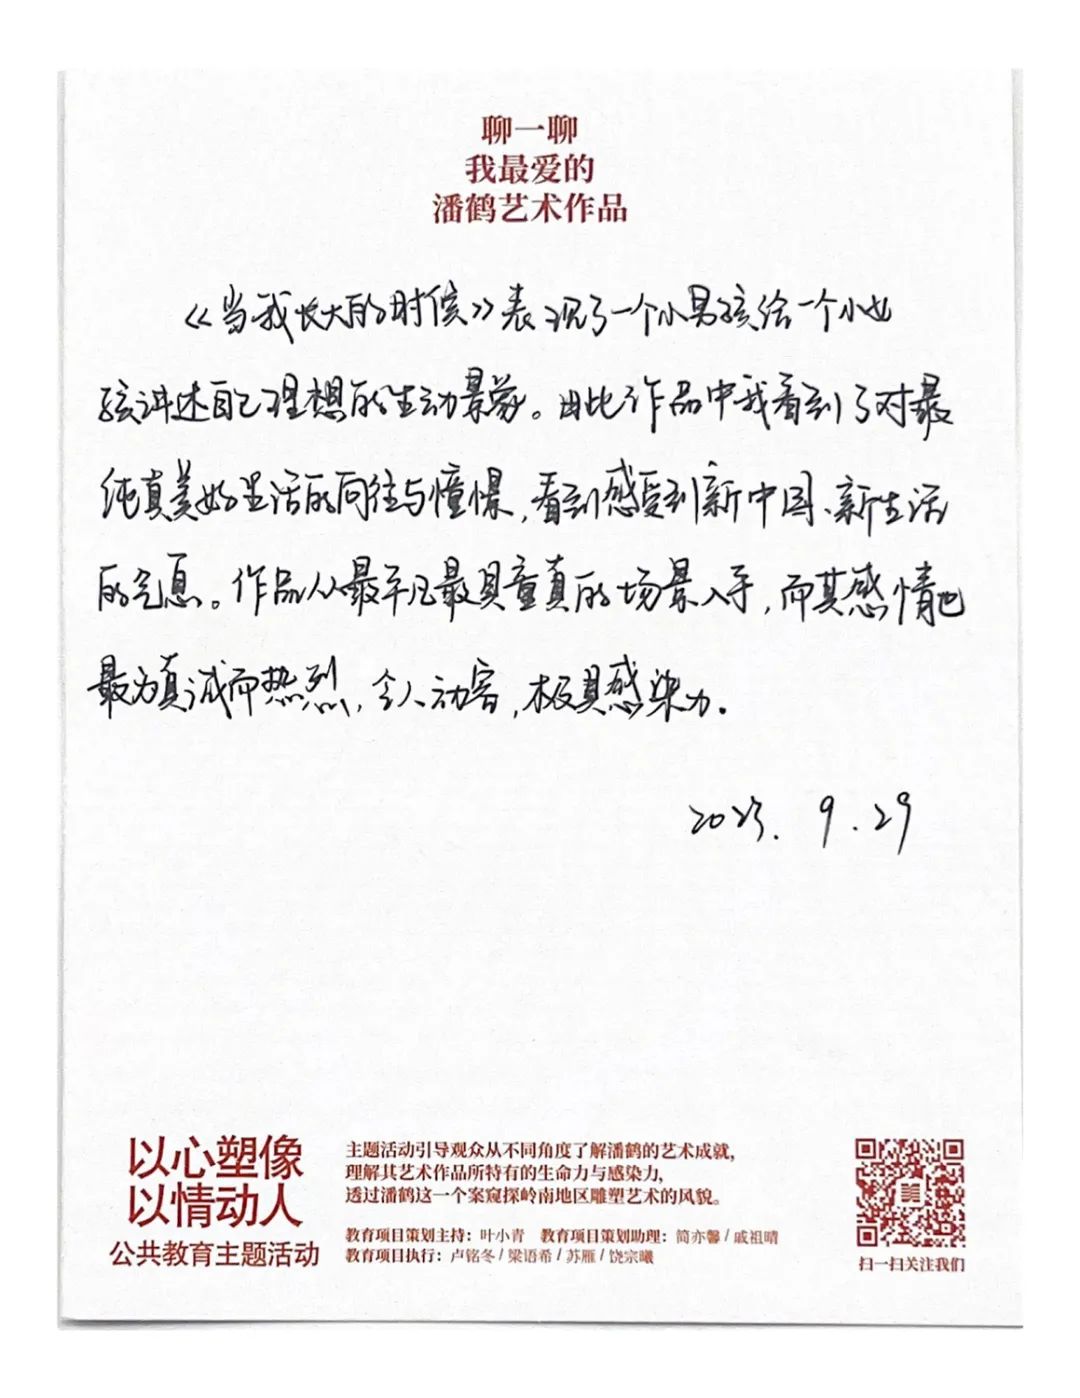 聊一聊
我最爱的
潘鹤艺术作品
《当我长大的时候》表现了一个小男孩给一个小女
孩讲述自己理想的生动景象。由此作品中我看到了对最
纯真美好生活的向往与憧憬,看到感受到新中国、新生活
的气息。作品从最平凡最具童真的场景入手,而其感情也
最为真诚而热烈,令人动容,极具感染力。
2023.9.29
以心塑像
以情动人
公共教育主题活动
主题活动引导观众从不同角度了解潘鹤的艺术成就,
理解其艺术作品所特有的生命力与感染力,
透过潘鹤这一个案窥探岭南地区雕塑艺术的风貌。
教育项目策划主持:叶小青 教育项目策划助理:简亦馨/戚祖晴
教育项目执行:卢铭冬/梁语希/苏雁/饶宗曦
扫一扫关注我们